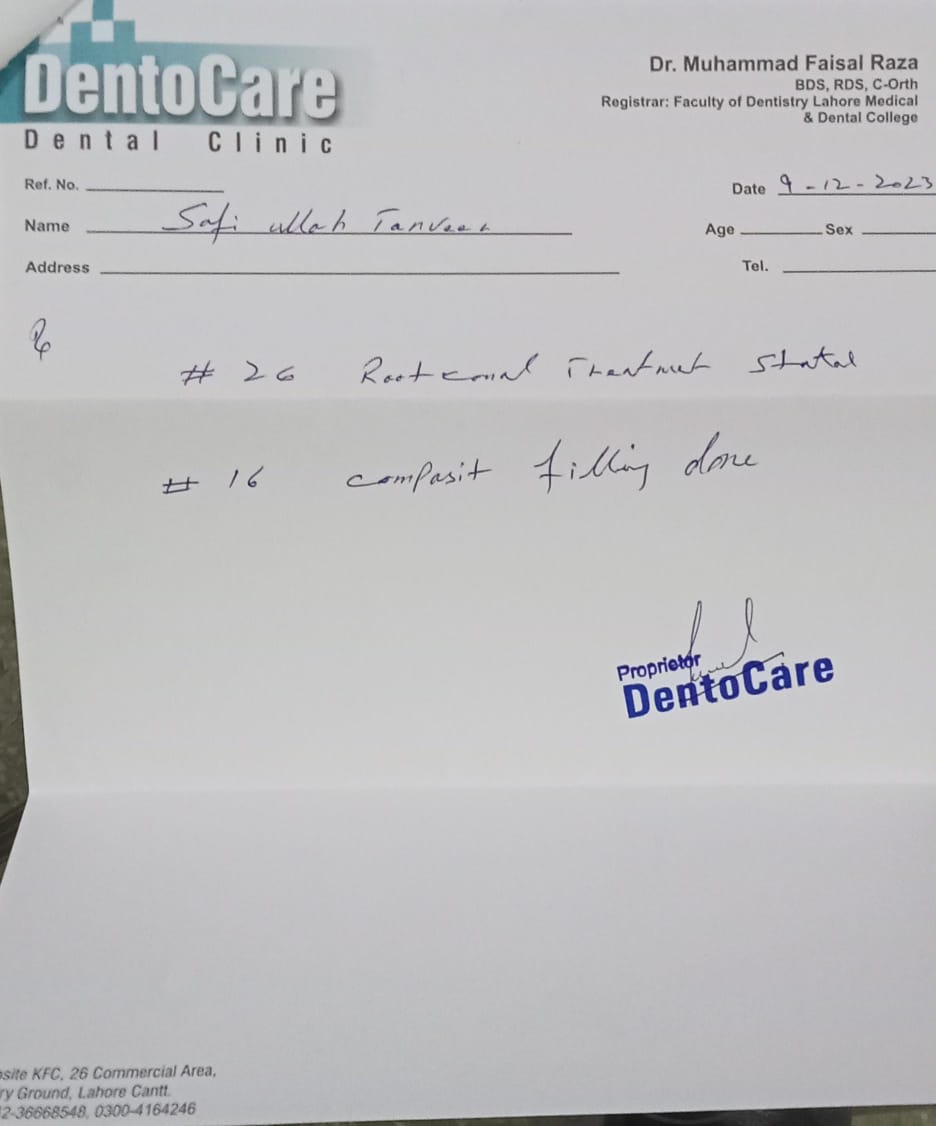 DentoCare
Dental Clinic
Dr. Muhammad Faisal Raza
BDS, RDS, C-Orth
Registrar: Faculty of Dentistry Lahore Medical
& Dental College
Ref. No.
Date 9-12-2023
Name Safi ullah Tanveer
Age Sex
Address
Tel.
# 26 Root canal Treatment
# 16 compasit filling done
Proprietor
DentoCare
KFC, 26 Commercial Area,
Ground, Lahore Cantt.
2-36668548, 0300-4164246